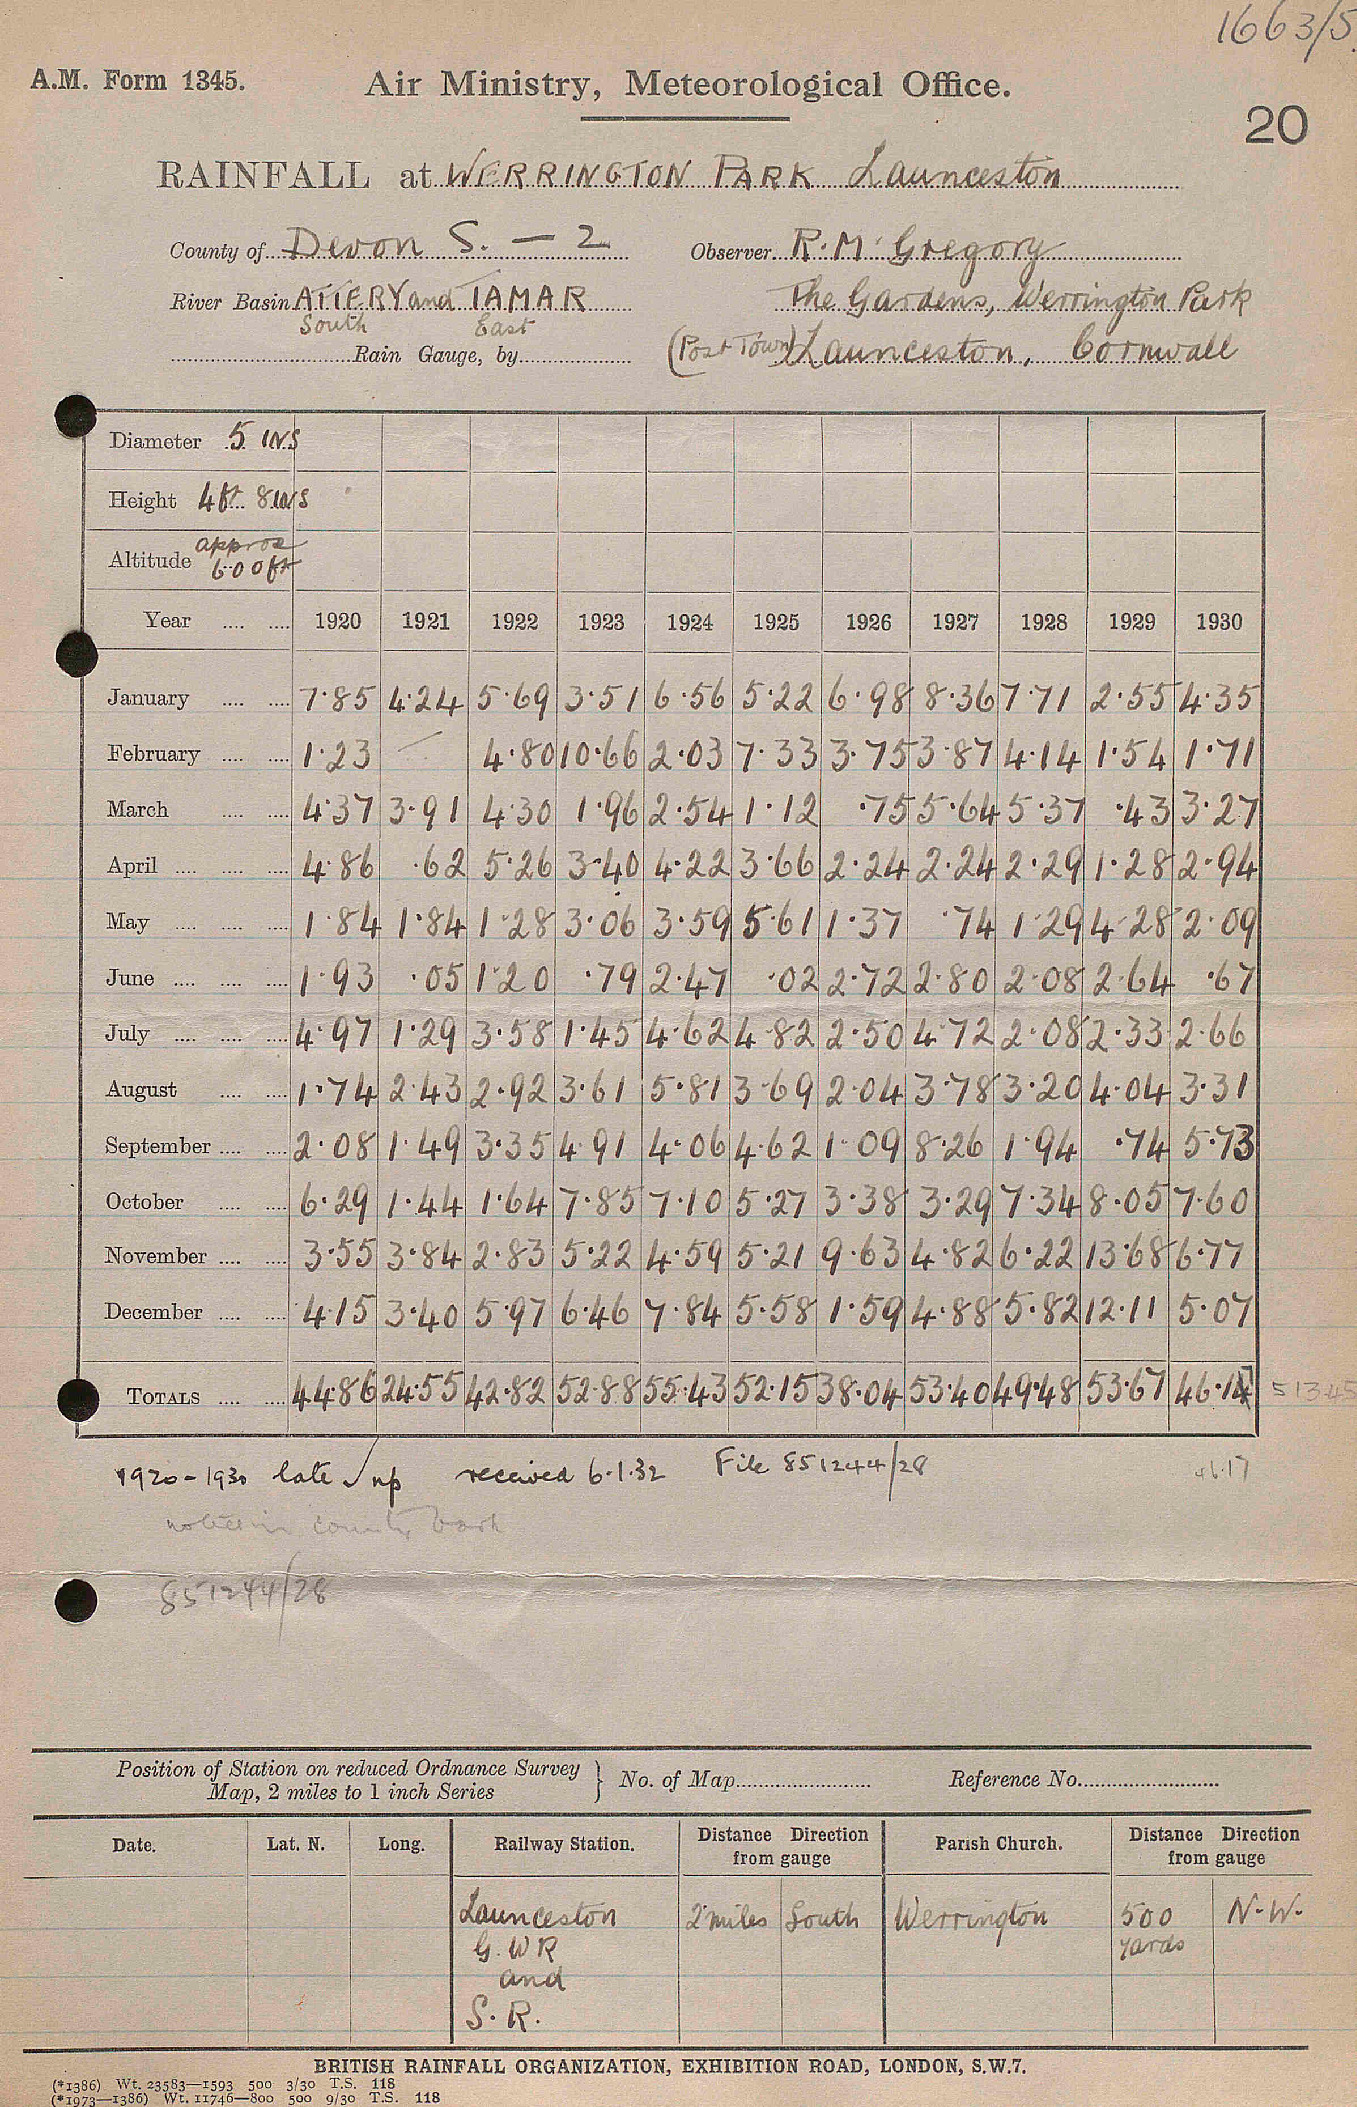 1663/5.
A.M. Form 1345. Air Ministry, Meteorological Office.
20
RAINFALL at WERRINGTON PARK Launceston
County of Devon S. — 2 Observer R. M. Gregory
River Basin ATTERY and TAMAR The Gardens, Werrington Park
South East
Rain Gauge, by (Post Town) Launceston, Cornwall
Diameter 5 INS
Height 4 ft 8 INS
Altitude approx 600 ft
Year 1920 1921 1922 1923 1924 1925 1926 1927 1928 1929 1930
January 7·85 4·24 5·69 3·51 6·56 5·22 6·98 8·36 7·71 2·55 4·35
February 1·23 — 4·80 10·66 2·03 7·33 3·75 3·87 4·14 1·54 1·71
March 4·37 3·91 4·30 1·96 2·54 1·12 ·75 5·64 5·37 ·43 3·27
April 4·86 ·62 5·26 3·40 4·22 3·66 2·24 2·24 2·29 1·28 2·94
May 1·84 1·84 1·28 3·06 3·59 5·61 1·37 ·74 1·29 4·28 2·09
June 1·93 ·05 1·20 ·79 2·47 ·02 2·72 2·80 2·08 2·64 ·67
July 4·97 1·29 3·58 1·45 4·62 4·82 2·50 4·72 2·08 2·33 2·66
August 1·74 2·43 2·92 3·61 5·81 3·69 2·04 3·78 3·20 4·04 3·31
September 2·08 1·49 3·35 4·91 4·06 4·62 1·09 8·26 1·94 ·74 5·73
October 6·29 1·44 1·64 7·85 7·10 5·27 3·38 3·29 7·34 8·05 7·60
November 3·55 3·84 2·83 5·22 4·59 5·21 9·63 4·82 6·22 13·68 6·77
December 4·15 3·40 5·97 6·46 7·84 5·58 1·59 4·88 5·82 12·11 5·07
TOTALS 44·86 24·55 42·82 52·88 55·43 52·15 38·04 53·40 49·48 53·67 46·14 513.45
1920–1930 late up received 6·1·32 File 851244/28 46.17
in county book
851244/28
Position of Station on reduced Ordnance Survey
Map, 2 miles to 1 inch Series } No. of Map Reference No.
Date. Lat. N. Long. Railway Station. Distance Direction from gauge Parish Church. Distance Direction from gauge
Launceston 2 miles South Werrington 500 N-W.
G. W R yards
and
S. R.
BRITISH RAINFALL ORGANIZATION, EXHIBITION ROAD, LONDON, S.W.7.
(*1386) Wt. 23583—1593 500 3/30 T.S. 118
(*1973—1386) Wt. 11746—800 500 9/30 T.S. 118